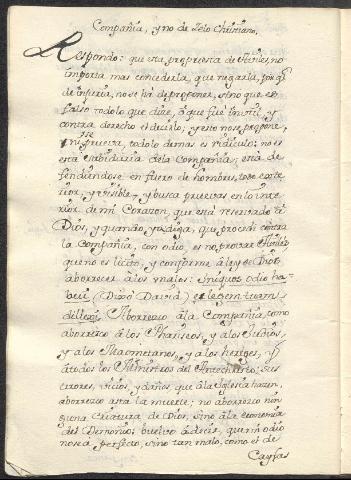 Compañia, y no de Zelo Christiano.
Respondo: que esta propuesta es steril, no
importa mas concederla, que negarla, porq̃
de injuria, no se ha de proponer, sino que es
falso todo lo que dize, ò que fue inutil y
contra derecho el decirlo; y esto no se propone,
se prueva, todo lo demas es ridiculo: no es
esta sabiduria dela Compañia; està de
fendiendose en fuero de hombres, todo exte
rior, y visible, y busca pruevas en lo inte
rior de mi Corazon, que està reservado à
Dios, y quando yo diga, que procedi contra
la Compañia, con odio, es no, provar
que no es licito, y conforme à la ley de Dios
aborrecer à los malos: Iniquos odio ha-
bui (Dixo David) et legem tuam
dillexi. Aborrezco àla Compañia, como
aborrezco à los Phariseos, y a los Judios,
y a los Maometanos, y a los hereges, y
àtodos los Ministros del Antechristo: sus
errores, vicios, y daños, que àla Iglesia hazen,
aborrezco asta la muerte; no aborrezco nin
guna Criatura de Dios, sino àla economia
del Demonio; buelvo à decir, que mi odio
no sea perfecto, sino tan malo, como el de
Cayfas